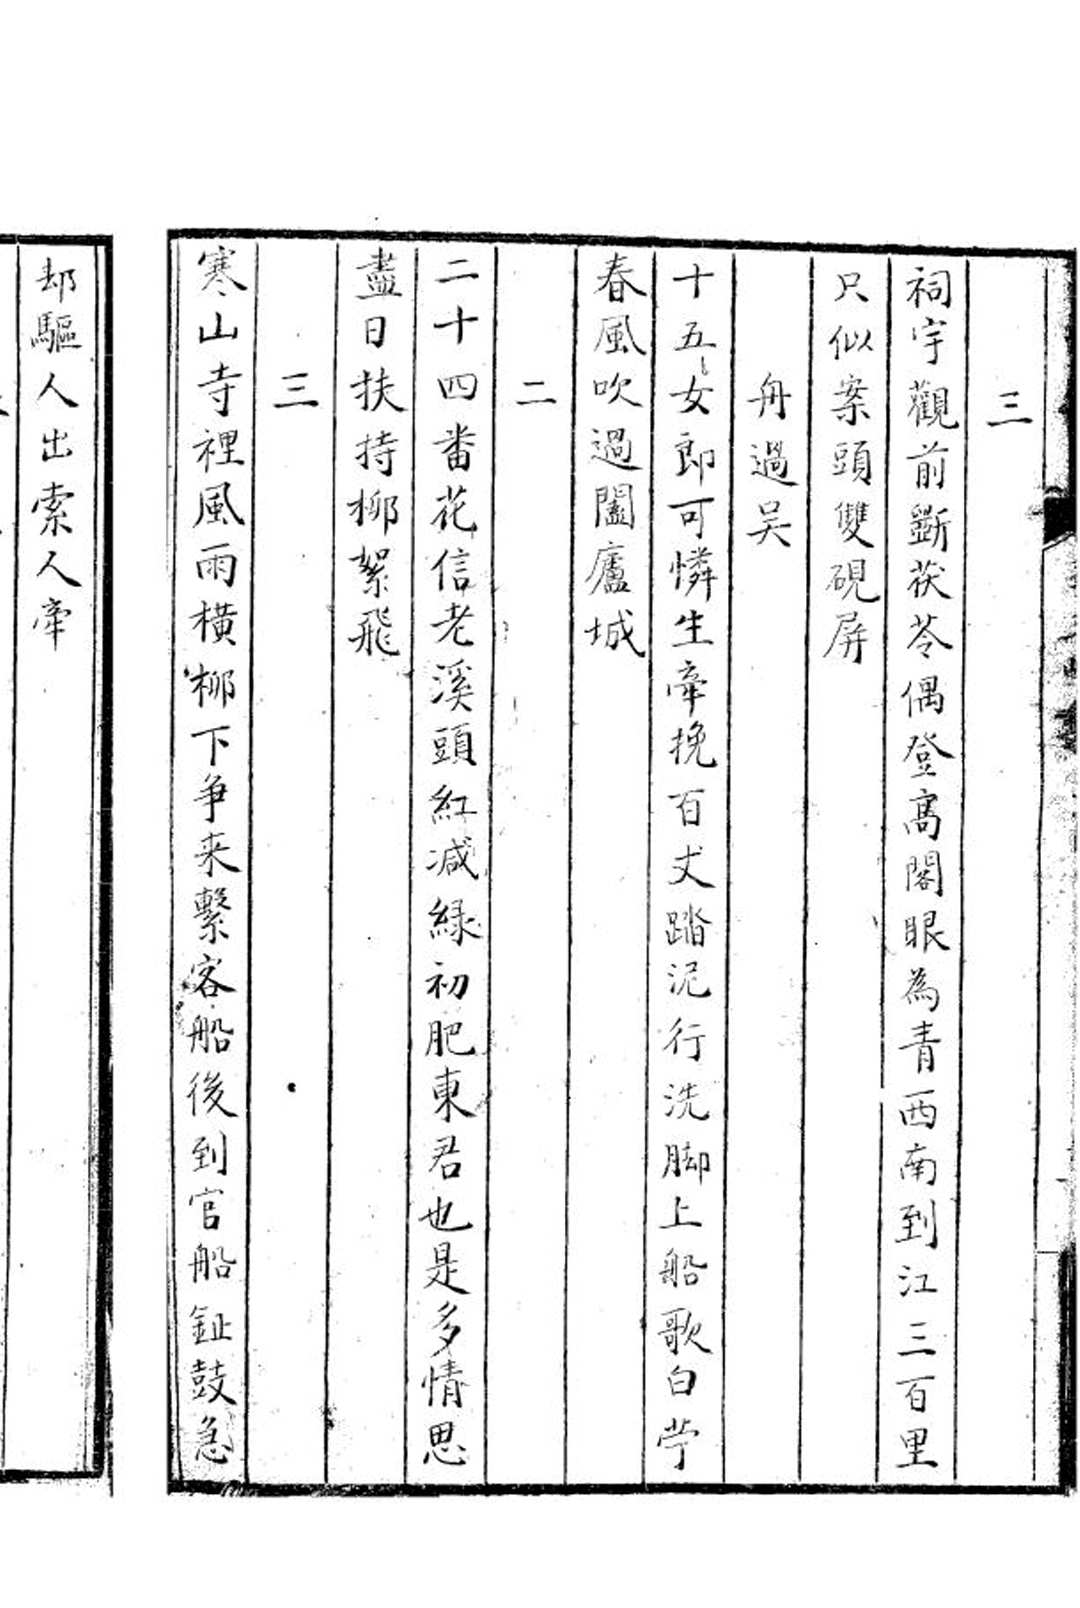 三
祠宇觀前斸茯苓偶登髙閣眼為青西南到江三百里
只似案頭雙硯屏
舟過吴
十五女郎可憐生牽挽百丈踏泥行洗脚上船歌白苧
春風吹過闔廬城
二
二十四番花信老溪頭紅减緑初肥東君也是多情思
盡日扶持柳絮飛
三
寒山寺裡風雨橫柳下争来繫客船後到官船鉦鼓急
却驅人出索人牽